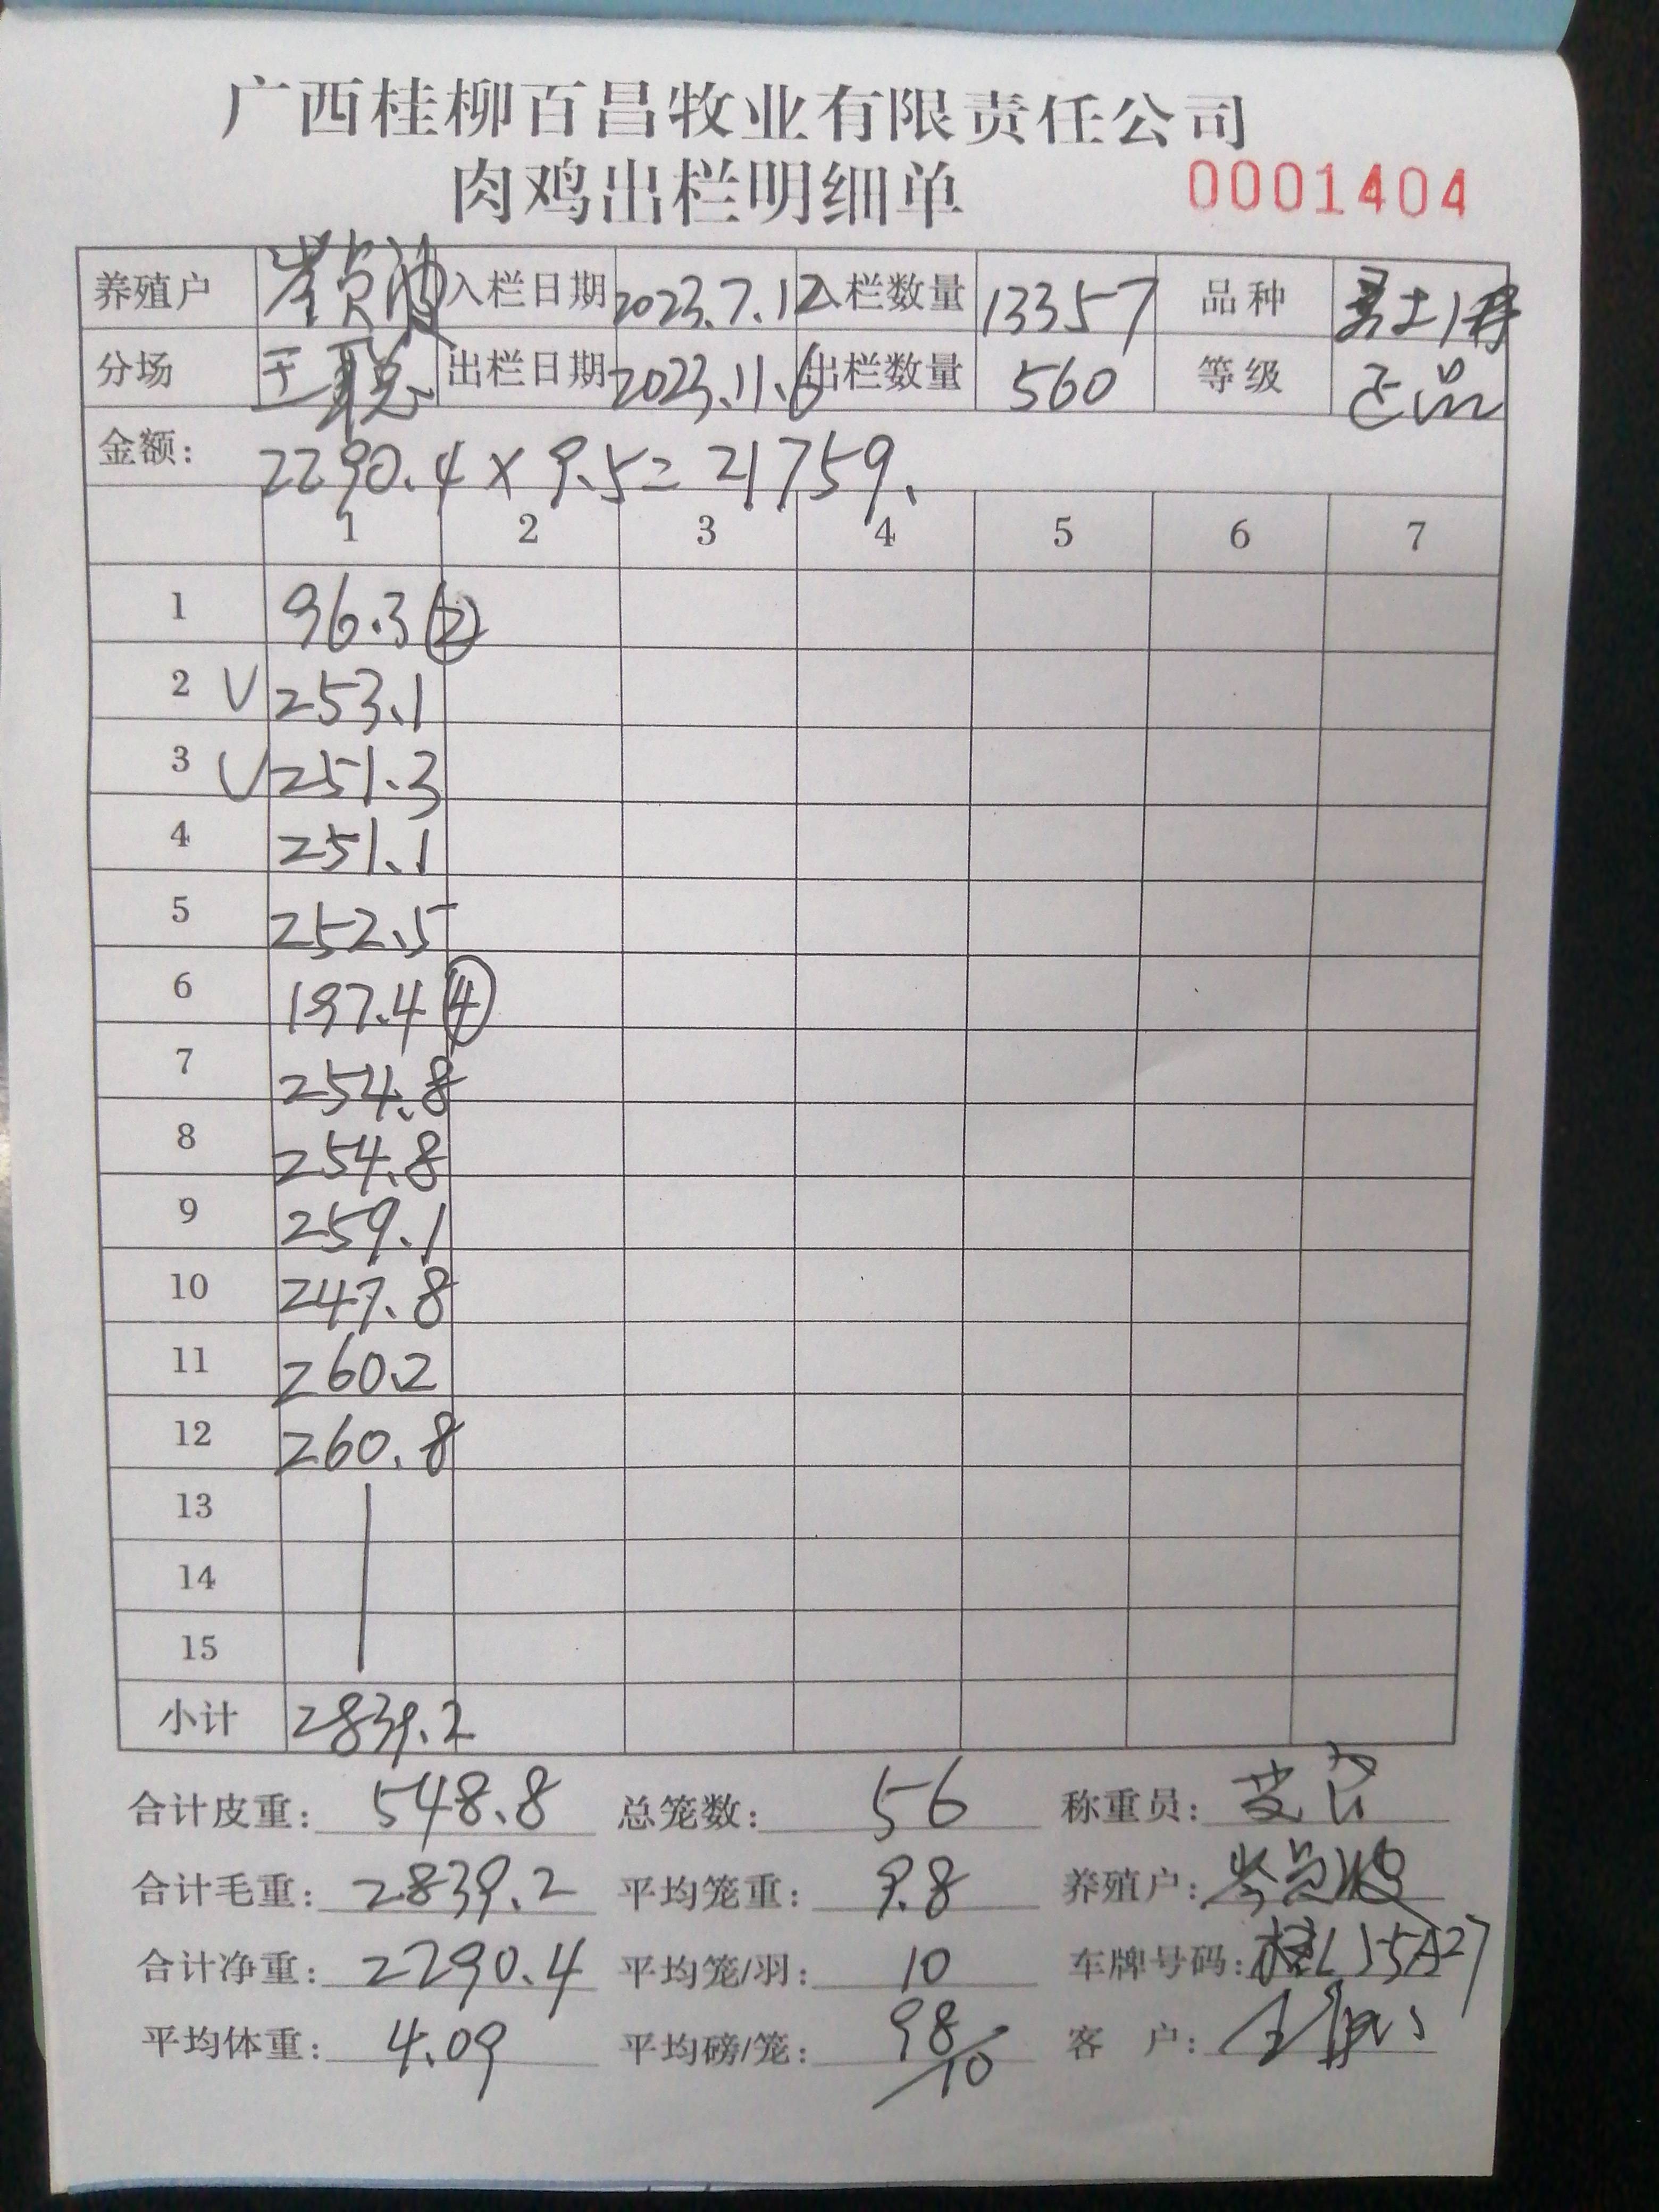 广西桂柳百昌牧业有限责任公司
肉鸡出栏明细单 0001404
养殖户 入栏日期 2023.7.12 入栏数量 13357 品种
分场 王聪 出栏日期 2023.11.6 出栏数量 560 等级 正品
金额: 2290.4 × 9.5 = 21759.
1 2 3 4 5 6 7
1 96.3 ②
2 V 253.1
3 V 251.3
4 251.1
5 252.5
6 197.4 ④
7 254.8
8 254.8
9 259.1
10 247.8
11 260.2
12 260.8
13
14
15
小计 2839.2
合计皮重: 548.8 总笼数: 56 称重员:
合计毛重: 2839.2 平均笼重: 9.8 养殖户:
合计净重: 2290.4 平均笼/羽: 10 车牌号码: 桂L55A27
平均体重: 4.09 平均磅/笼: 98/10 客 户: